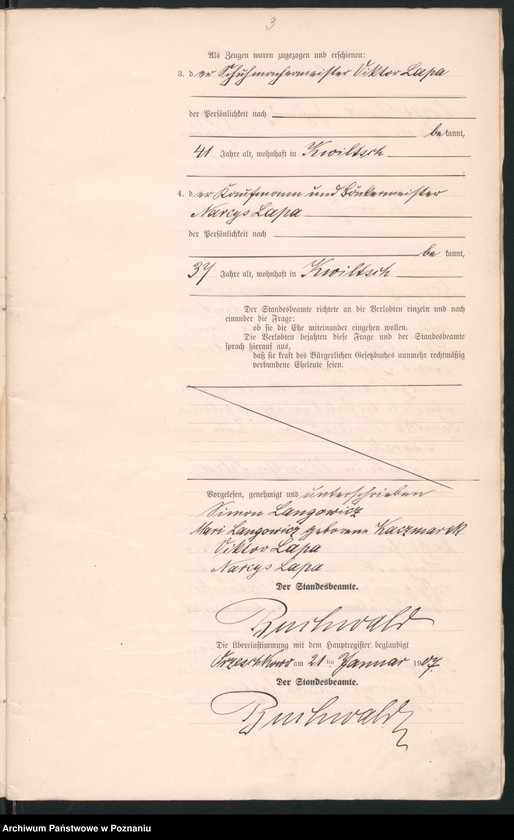 3
Als Zeugen waren zugezogen und erschienen:
3. der Schuhmachermeister Viktor Lapa
der Persönlichkeit nach
bekannt,
41 Jahre alt, wohnhaft in Kwiltsch
4. der Kaufmann und Bäckermeister
Narcys Lapa
der Persönlichkeit nach
be kannt,
37 Jahre alt, wohnhaft in Kwiltsch
Der Standesbeamte richtete an die Verlobten einzeln und nach
einander die Frage:
ob sie die Ehe miteinander eingehen wollen.
Die Verlobten bejahten diese Frage und der Standesbeamte
sprach hierauf aus,
daß sie kraft des Bürgerlichen Gesetzbuches nunmehr rechtmäßig
verbundene Eheleute seien.
Vorgelesen, genehmigt und unterschrieben
Simon Langowicz
Mari Langowicz geborene Kaczmarek
Viktor Lapa
Narcys Lapa
Der Standesbeamte.
Buchwald
Die Übereinstimmung mit dem Hauptregister beglaubigt
am 21 ten Januar 1907.
Der Standesbeamte.
Buchwald
Archiwum Państwowe w Poznaniu